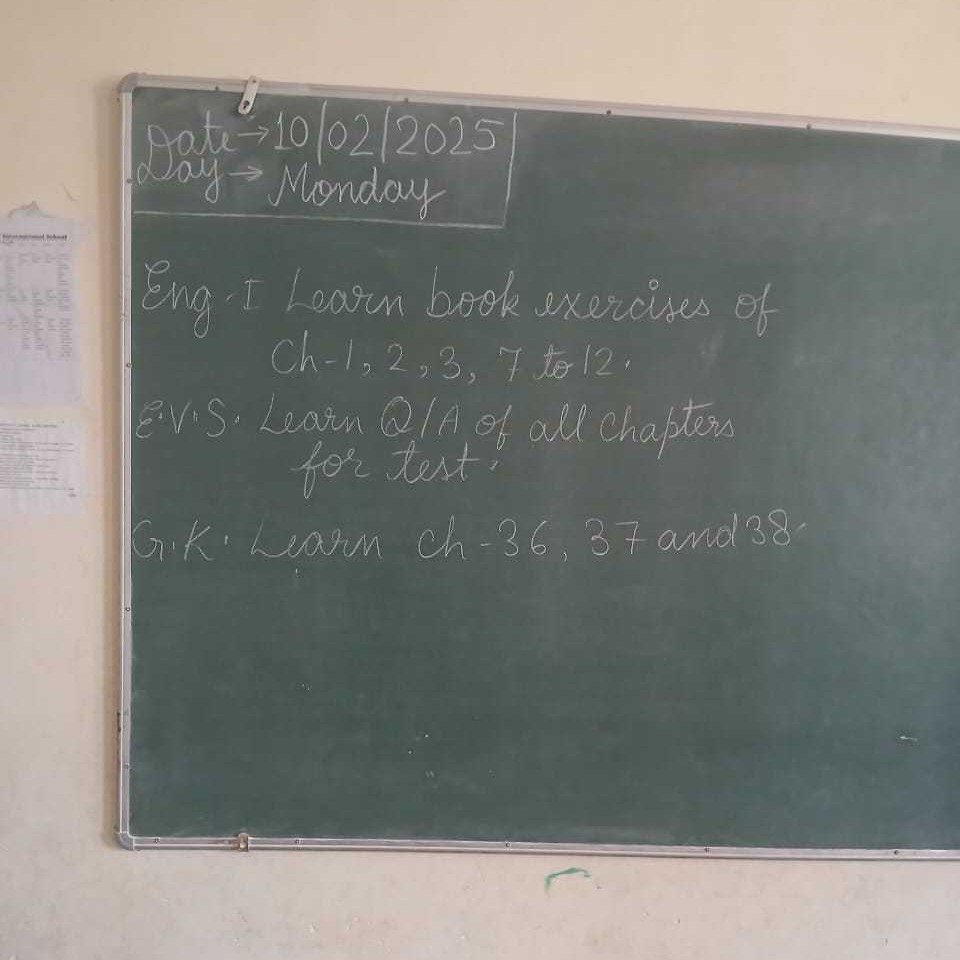 International School
Date → 10/02/2025
Day → Monday
Eng - I Learn book exercises of
Ch-1, 2, 3, 7 to 12.
E.V.S. Learn Q/A of all chapters
for test.
G.K. Learn ch - 36, 37 and 38.